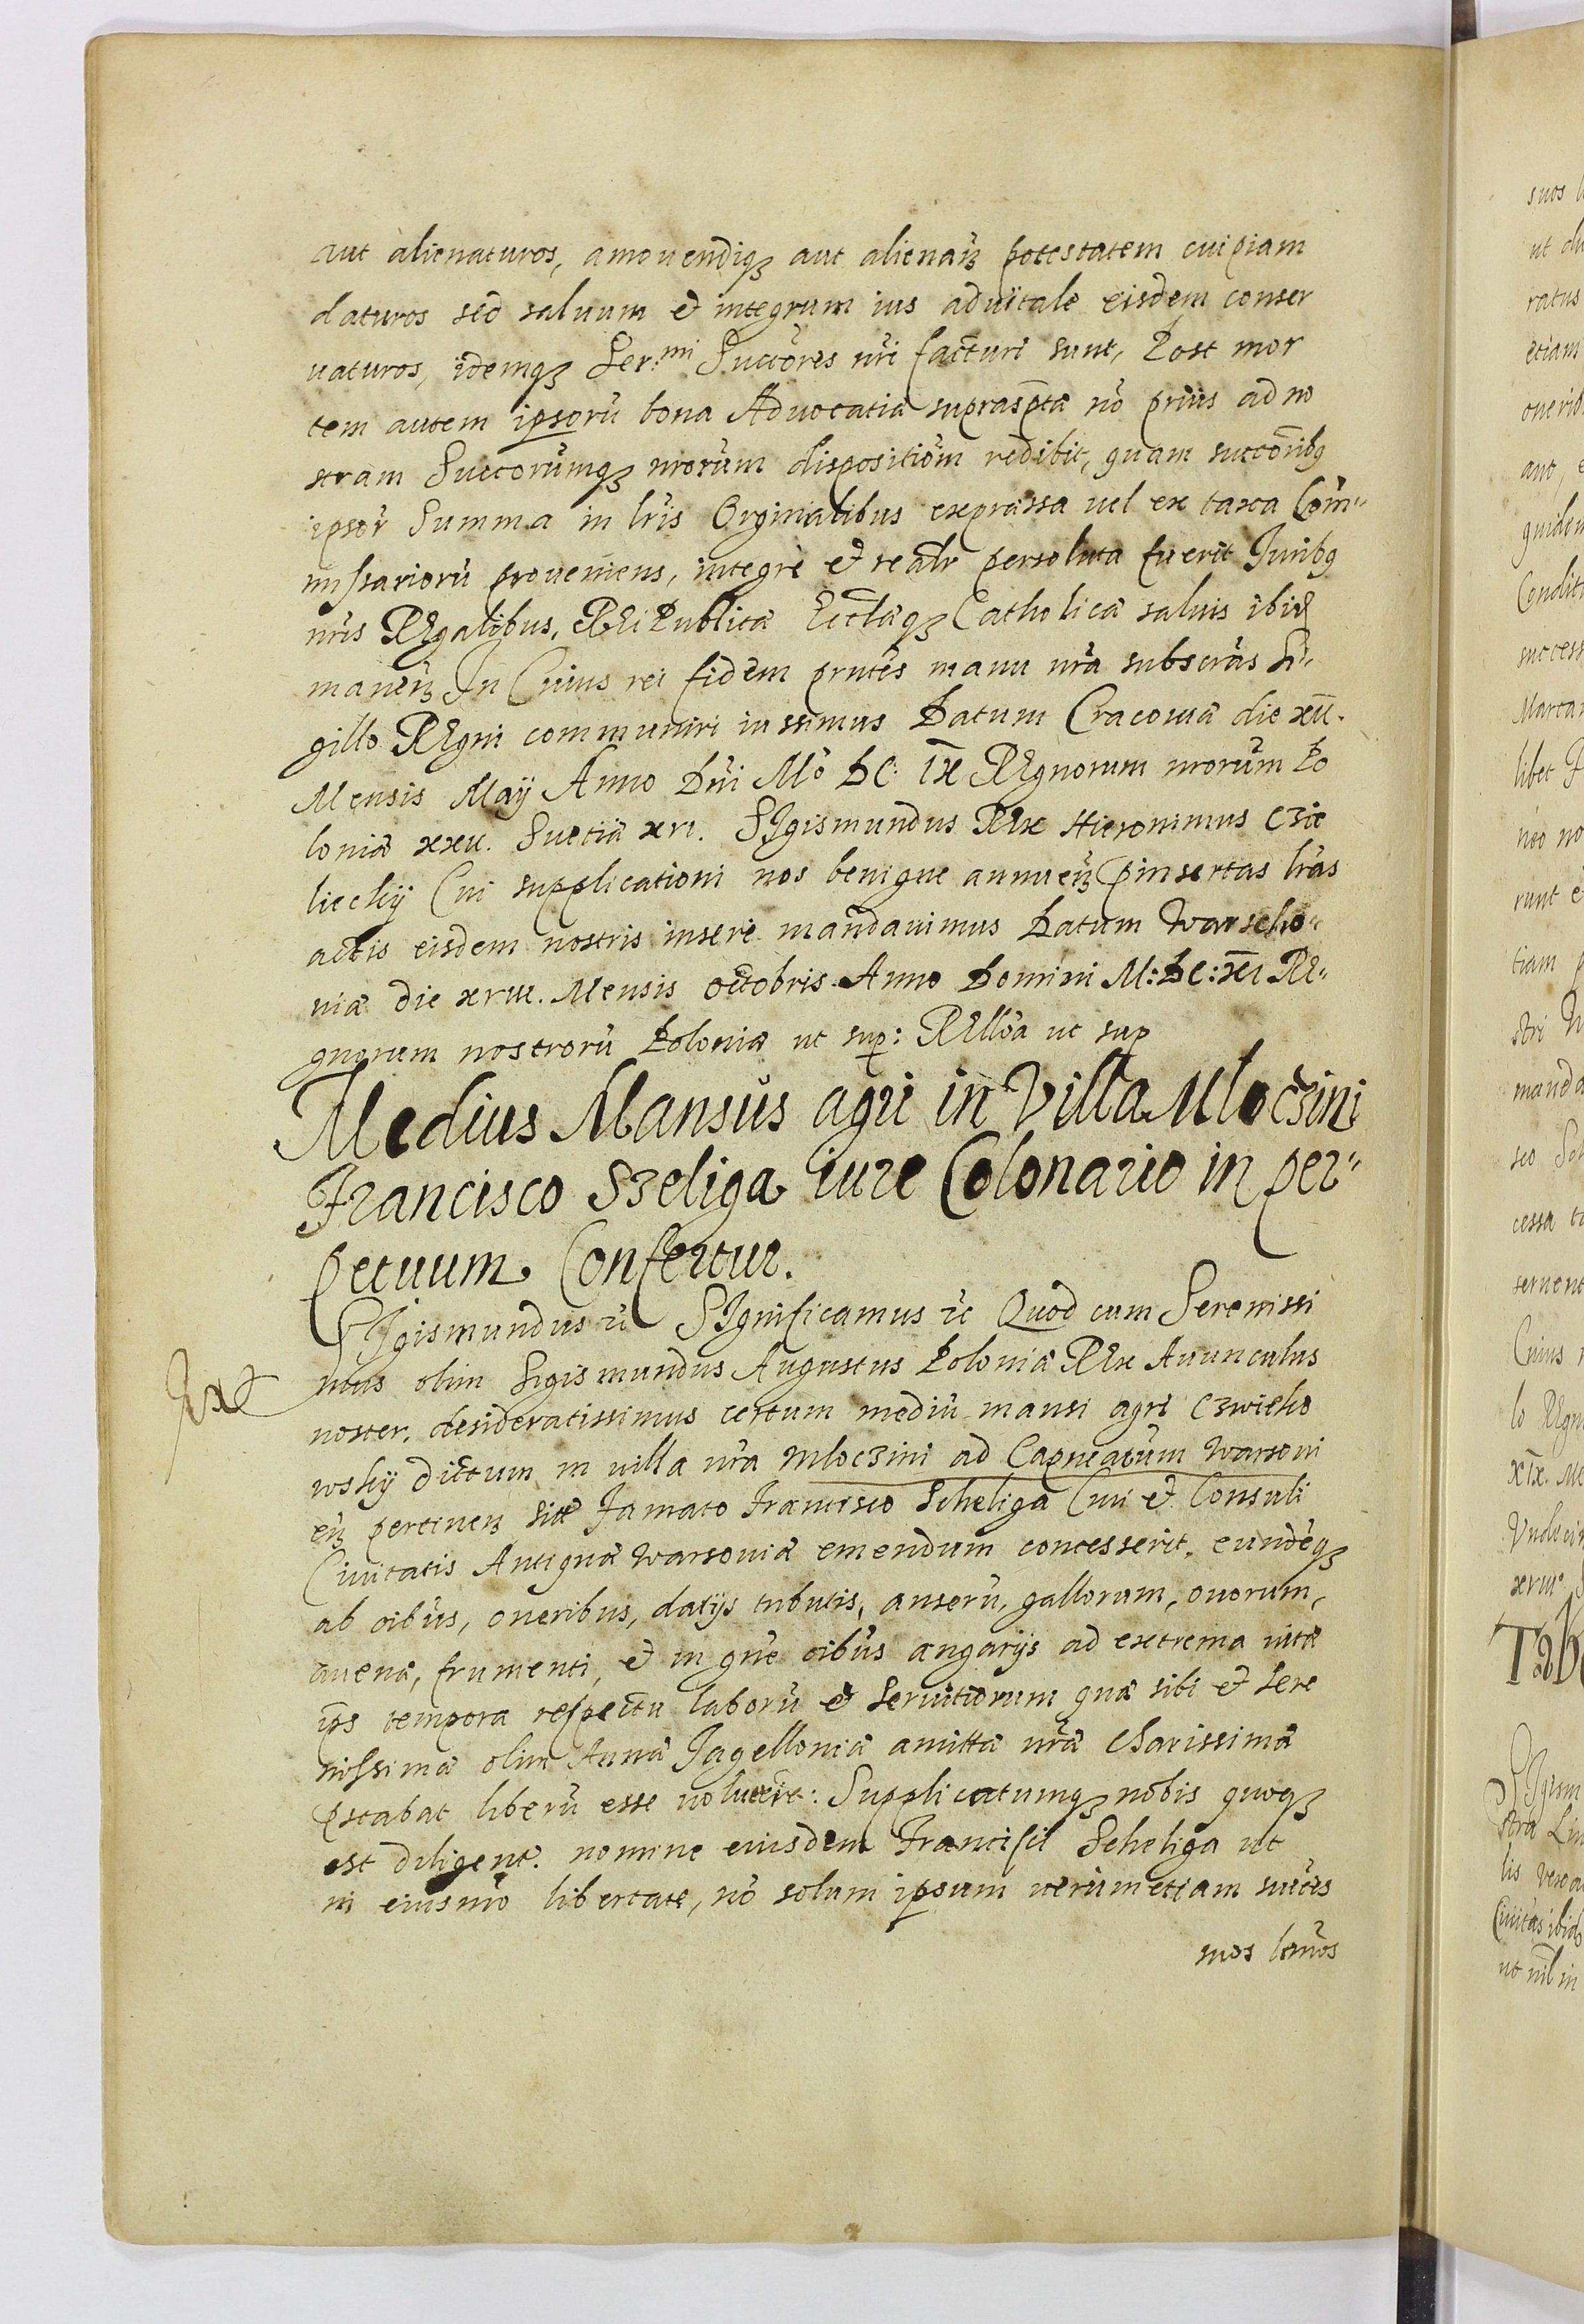 aut alienaturos, amouendiqꝫ aut alienañ potestatem cuipiam
daturos sed saluum et integrum ius aduitale eisdem conser
uaturos, idemqꝫ Ser:mi Succōres nr̄i facturi sunt, Post mor
tem autem ipsorū bona Aduocatia suprasp̄ta nō priùs ad no
stram Succorūmqꝫ nrorūm dispositiōm redibit, quam succōribꝫ
ipsor̄ Summa in lr̄is Orginalibus expressa uel ex taxa Com̄"
missariorū proueniens, integrè et realr̄ persoluta fuerit Juribꝫ
nr̄is REgalibus, REi Publicæ Eccl̄æqꝫ Catholicæ saluis ibid
maneñ In Cuius rei fidem prn̄tes manu nr̄a subscr̄as Si"
gillo REgni communiri iussimus Datum Cracouiæ die xII.
Mensis Maÿ Anno Dn̄i Mō DC: IX REgnorum nrorūm Po
loniæ xxII. Suetiæ xvI. SIgismundus REx Hieronimus Czie
liecky Cui supplicationi nos benigne annueñ p̄insertas lr̄as
actis eisdem nostris inseri mandauimus Datum Warscho"
uiæ die xvIII. Mensis Octobris Anno Domini M:DC:XI RE"
gnorum nostrorū Poloniæ ut sup: REllōa ut sup
Medius Mansus agri in Villa Mloczini
Francisco Szeliga iure Colonario in per"
petuum Confertur.
SIgismundus etc SIgnificamus etc Quod cum Serenissi
mus olim Sigismundus Augustus Poloniæ REx Auunculus
noster, desideratissimus certum mediū mansi agri Czwicko
wsky dictum in uilla nr̄a Mloczini ad Capneatūm Warsoui
eñ pertineñ sitæ Famato Francisco Scheliga Ciui et Consuli
Ciuitatis Antiquæ Warsouiæ emendum concesserit, eundēqꝫ
ab oībus, oneribus, datÿs tributis, anserū, gallorum, ouorum,
auenæ, frumenti, et in gn̄e oībus angarÿs ad extrema uitæ
ip̄s tempora respectu laborū et Seruitiorum quæ sibi et Sere
nissimæ olim Annæ Jagelloniæ amittæ nr̄æ Charissimæ
p̄stabat liberū esse uoluerit: Supplicatumqꝫ nobis quoqꝫ
est diligent. nomine eiusdem Francisci Scheliga ut
in eiusmō libertate, nō solum ipsum uerūmetiam succēs